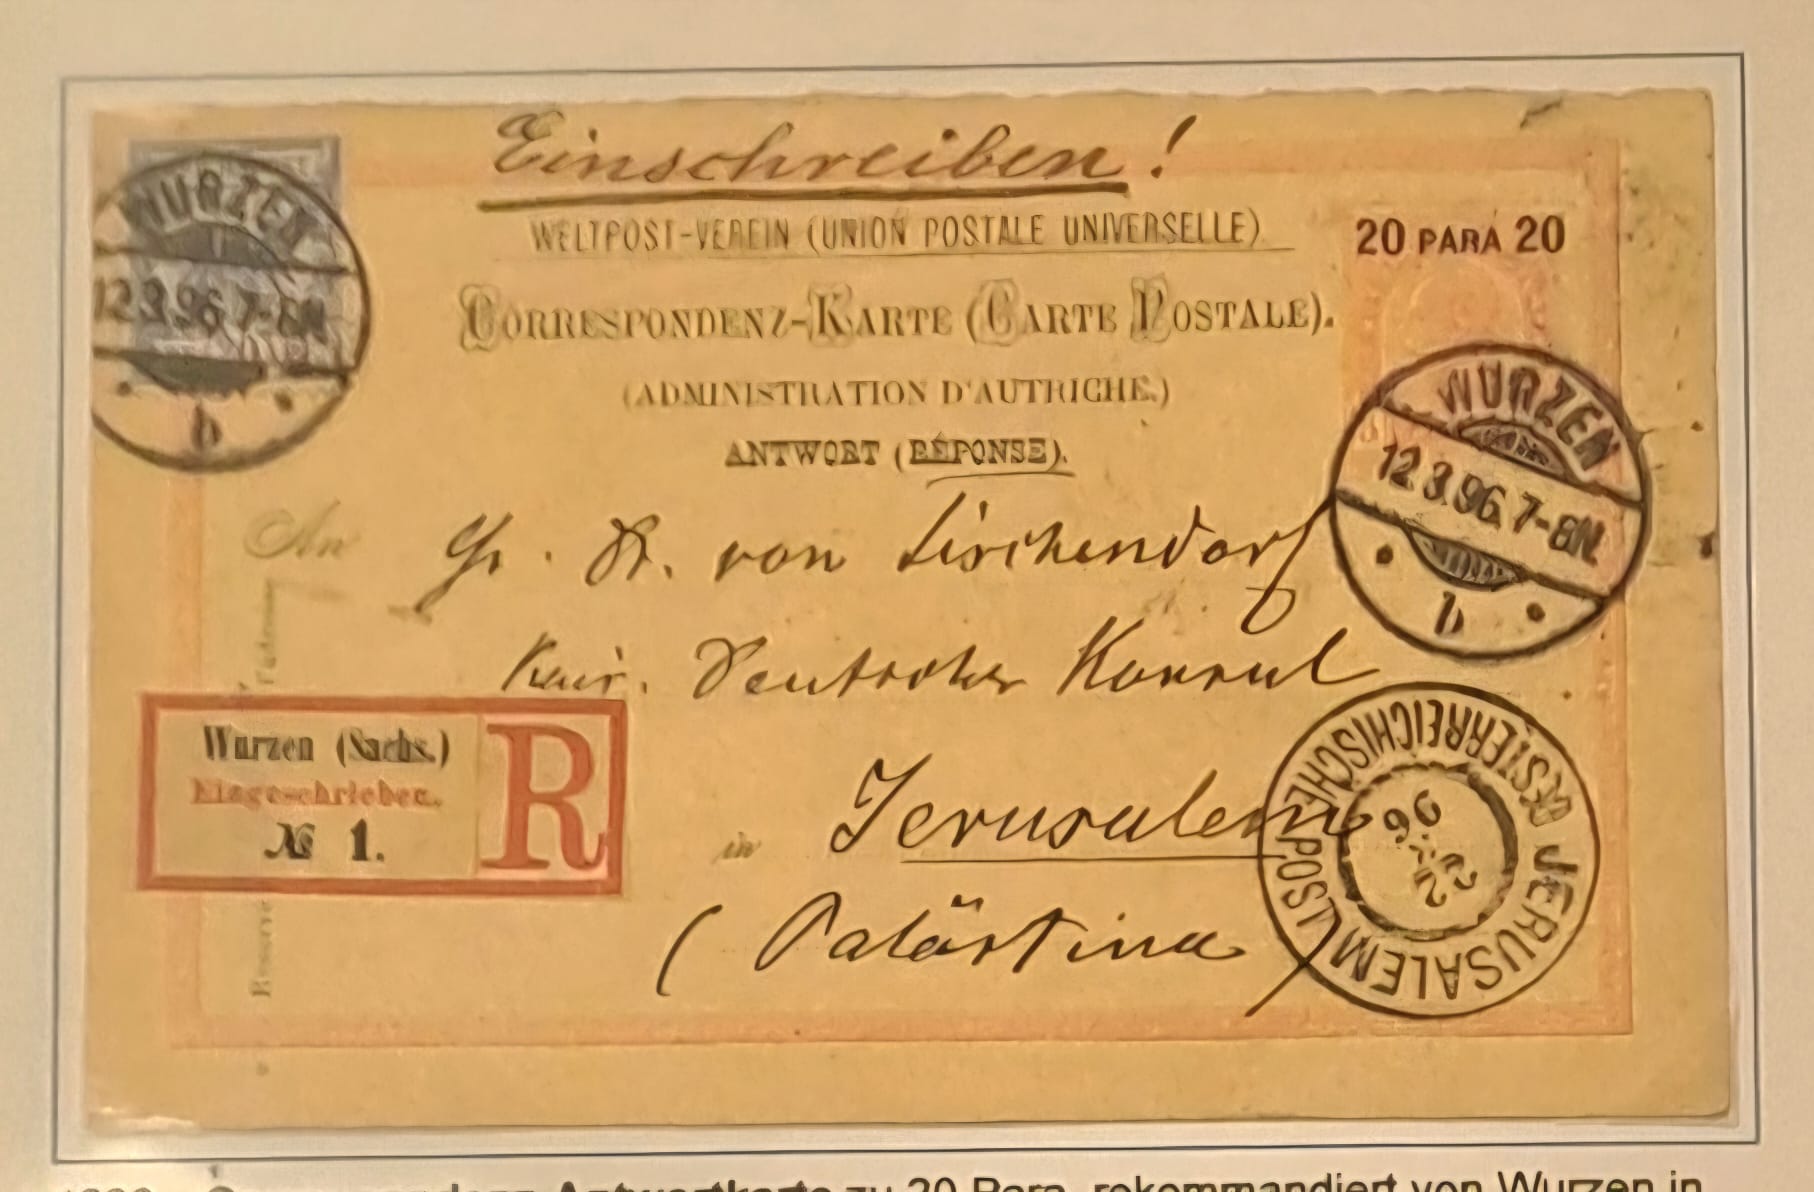 Einschreiben!
WELTPOST-VEREIN (UNION POSTALE UNIVERSELLE).
20 PARA 20
CORRESPONDENZ-KARTE (CARTE POSTALE).
(ADMINISTRATION D'AUTRICHE.)
ANTWORT (RÉPONSE).
WURZEN
12.3.96 7-8N.
b
WURZEN
12.3.96 7-8N.
b
An
Hr. Dr. von Tischendorf
Kais. Deutscher Konsul
Wurzen (Sachs.)
Eingeschrieben.
№ 1.
R
in Jerusalem
(Palästina)
JERUSALEM
OESTERREICHISCHE POST
96
zu 20 Para, rekommandiert von Wurzen in